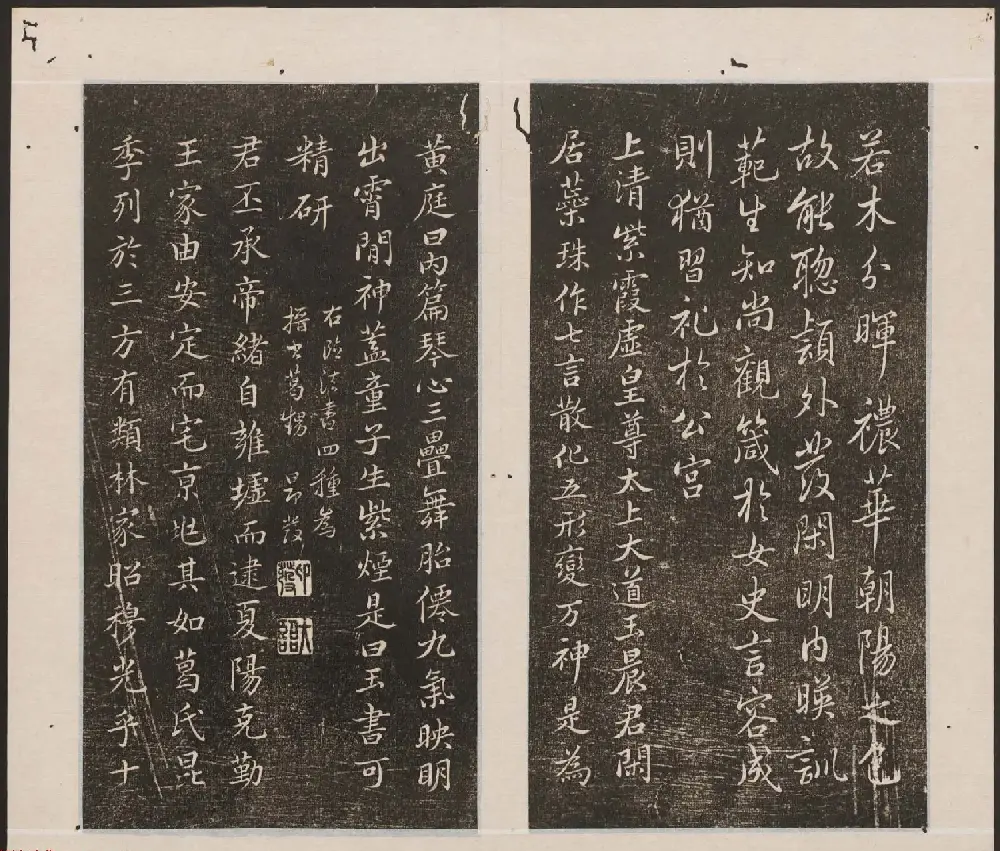 若木分暉禯華朝陽之色
故能聰頴外發閑明內暎訓
範生知尚觀箴於女史言容成
則猶習礼於公宮
上清紫霞虛皇尊太上大道玉晨君閑
居蘂珠作七言散化五形變万神是為
黃庭曰內篇琴心三疊舞胎僊九氣映明
出霄間神蓋童子生紫煙是曰玉書可
精研
右臨法書四種為
搢書葛甥 昂發
君丕承帝緒自雒墟而逮夏陽克勤
王家由安定而宅京兆其如葛氏昆
季列於三方有類林家昭穆光乎十